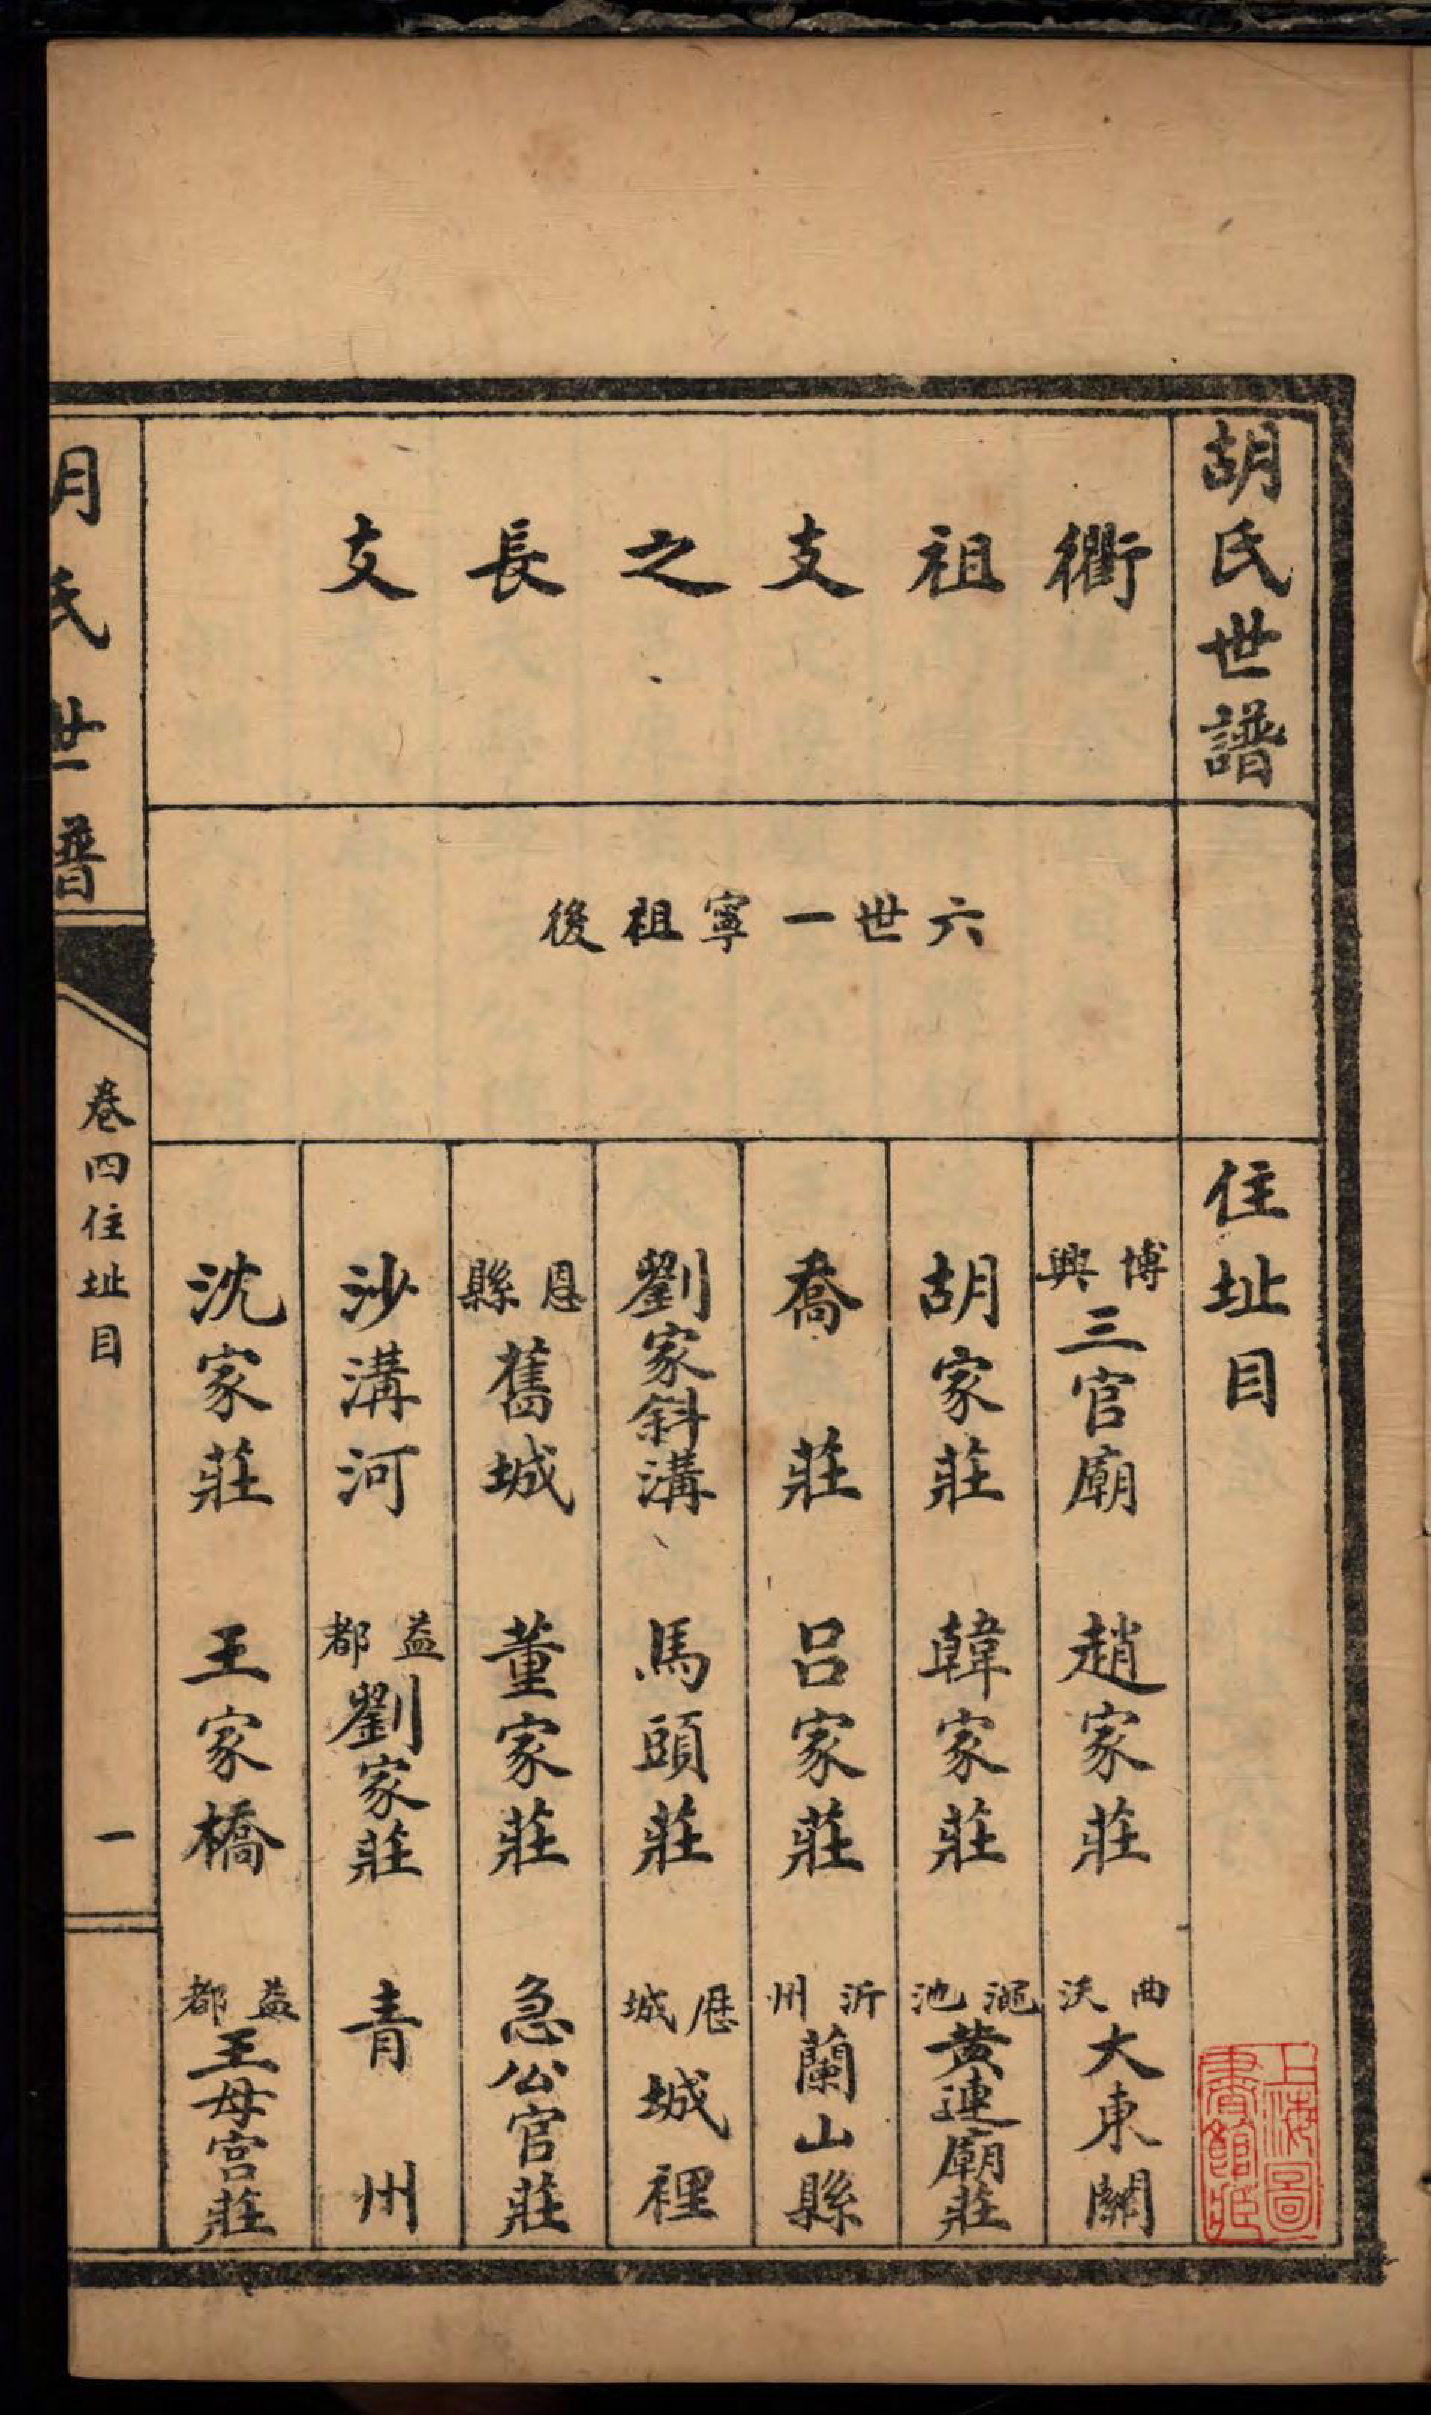 胡氏世譜
住址目
衢祖支之長支
六世一寧祖後
博興三官廟 趙家莊 曲沃大東關
胡家莊 韓家莊 澠池黃連廟莊
喬莊 呂家莊 沂州蘭山縣
劉家斜溝 馬頭莊 歷城城裡
恩縣舊城 董家莊 急公官莊
沙溝河 益都劉家莊 青州
沈家莊 王家橋 益都王母宮莊
胡氏世譜
卷四住址目
一
上海圖書館藏